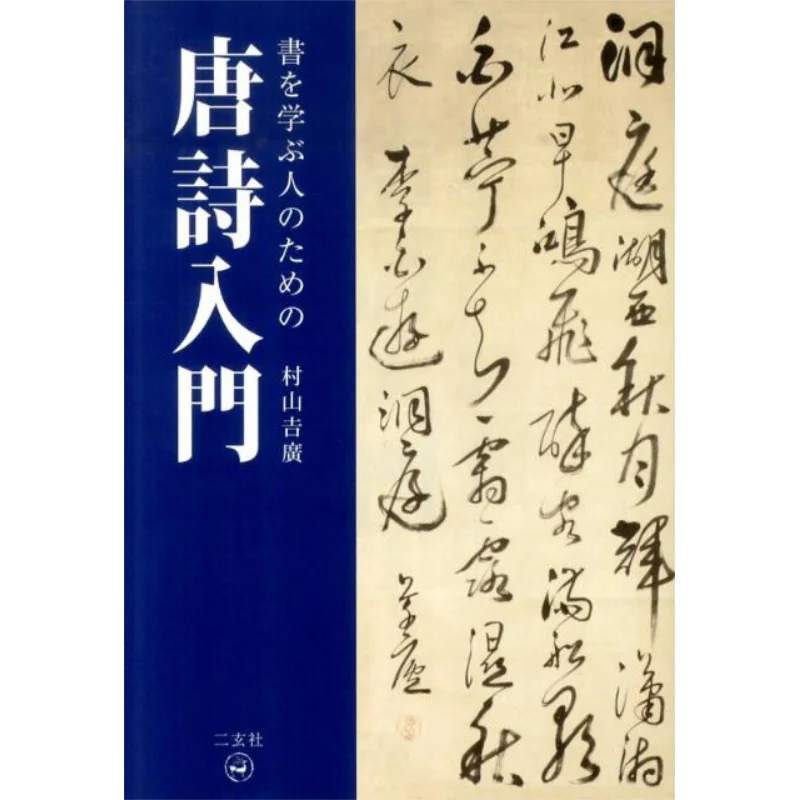 書を学ぶ人のための
唐詩入門
村山吉廣
二玄社
洞庭湖西秋月輝瀟湘
江北早鴻飛醉客満船歌
白苧不知霜露湿秋
衣 李白遊洞庭 草廬